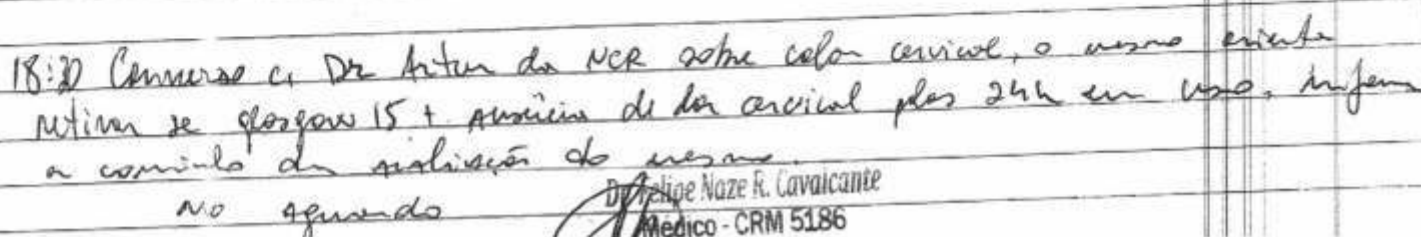 18:30 Converso c/ Dr Artur da NCR sobre colar cervical, o mesmo orienta
retirar se glasgow 15 + ausência de dor cervical pelas 24h em uso, informa
a caminho da avaliação do mesmo.
No aguardo
Dr Felipe Naze R. Cavalcante
Médico - CRM 5186